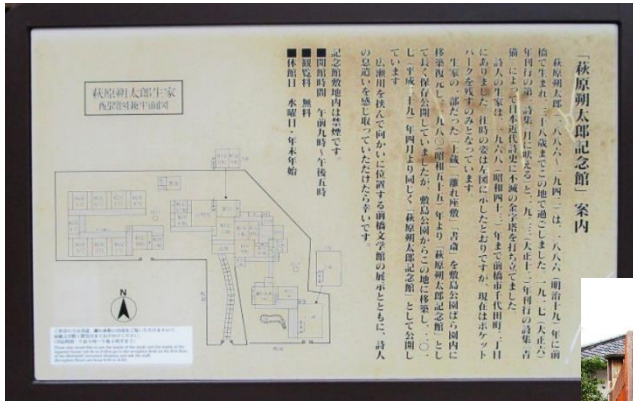 「萩原朔太郎記念館」案内
萩原朔太郎(一八八六～一九四二)は、一八八六(明治十九)年に前
橋で生まれ、三十八歳までこの地で過ごしました。一九一七(大正六)
年刊行の第一詩集『月に吠える』と一九二三(大正十二)年刊行の詩集『青
猫』によって日本近代詩史に不滅の金字塔を打ち立てました。
詩人の生家は、一九六八(昭和四十三)年まで前橋市千代田町二丁目
にありました。往時の姿は左図に示したとおりですが、現在はポケット
パークを残すのみとなっています。
生家の一部だった「土蔵」「離れ座敷」「書斎」を敷島公園ばら園内に
移築復元し、一九八〇(昭和五十五)年より「萩原朔太郎記念館」とし
て長く保存公開していましたが、敷島公園からこの地に移築し、二〇一
七(平成二十九)年四月より同じく「萩原朔太郎記念館」として公開し
ています。
広瀬川を挟んで向かいに位置する前橋文学館の展示とともに、詩人
の息遣いを感じ取っていただけたら幸いです。
記念館敷地内は禁煙です。
■開館時間 午前九時～午後五時
■観覧料 無料
■休館日 水曜日・年末年始
萩原朔太郎生家
配置図兼平面図
N